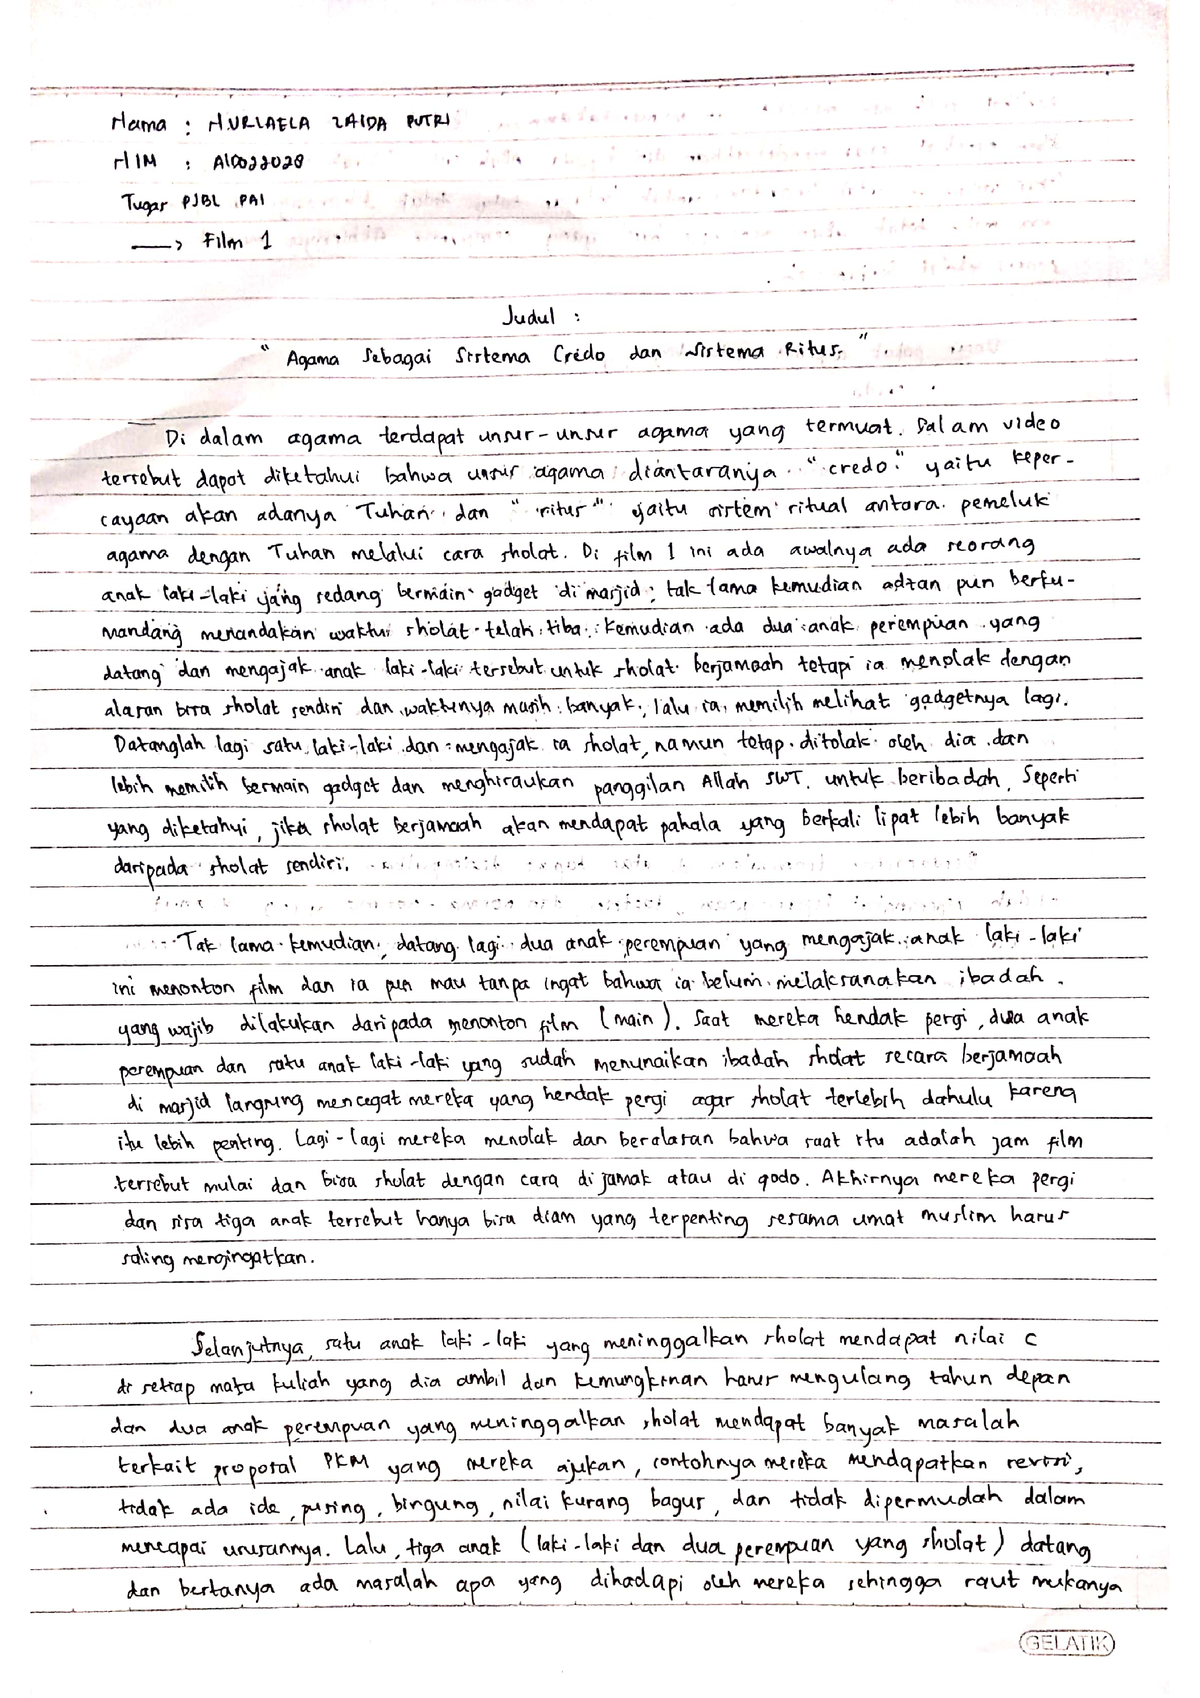 Nama : NURLAELA ZAIDA PUTRI
NIM : A10022028
Tugas PJBL PAI
→ Film 1
Judul :
" Agama Sebagai Sistema Credo dan Sistema Ritus "
Di dalam agama terdapat unsur-unsur agama yang termuat. Dalam video
tersebut dapat diketahui bahwa unsur agama diantaranya "credo" yaitu keper-
cayaan akan adanya Tuhan dan "ritus" yaitu sistem ritual antara pemeluk
agama dengan Tuhan melalui cara sholat. Di film 1 ini ada awalnya ada seorang
anak laki-laki yang sedang bermain gadget di masjid, tak lama kemudian adzan pun berku-
mandang menandakan waktu sholat telah tiba. Kemudian ada dua anak perempuan yang
datang dan mengajak anak laki-laki tersebut untuk sholat berjamaah tetapi ia menolak dengan
alasan bisa sholat sendiri dan waktunya masih banyak, lalu ia memilih melihat gadgetnya lagi.
Datanglah lagi satu laki-laki dan mengajak ia sholat, namun tetap ditolak oleh dia dan
lebih memilih bermain gadget dan menghiraukan panggilan Allah SWT. untuk beribadah. Seperti
yang diketahui, jika sholat berjamaah akan mendapat pahala yang berkali lipat lebih banyak
daripada sholat sendiri.
Tak lama kemudian, datang lagi dua anak perempuan yang mengajak anak laki-laki
ini menonton film dan ia pun mau tanpa ingat bahwa ia belum melaksanakan ibadah
yang wajib dilakukan daripada menonton film (main). Saat mereka hendak pergi, dua anak
perempuan dan satu anak laki-laki yang sudah menunaikan ibadah sholat secara berjamaah
di masjid langsung mencegat mereka yang hendak pergi agar sholat terlebih dahulu karena
itu lebih penting. Lagi-lagi mereka menolak dan beralasan bahwa saat itu adalah jam film
tersebut mulai dan bisa sholat dengan cara di jamak atau di qodo. Akhirnya mereka pergi
dan sisa tiga anak tersebut hanya bisa diam yang terpenting sesama umat muslim harus
saling mengingatkan.
Selanjutnya, satu anak laki-laki yang meninggalkan sholat mendapat nilai C
di setiap mata kuliah yang dia ambil dan kemungkinan harus mengulang tahun depan
dan dua anak perempuan yang meninggalkan sholat mendapat banyak masalah
terkait proposal PKM yang mereka ajukan, contohnya mereka mendapatkan revisi,
tidak ada ide, pusing, bingung, nilai kurang bagus, dan tidak dipermudah dalam
mencapai urusannya. Lalu, tiga anak (laki-laki dan dua perempuan yang sholat) datang
dan bertanya ada masalah apa yang dihadapi oleh mereka sehingga raut mukanya
GELATIK